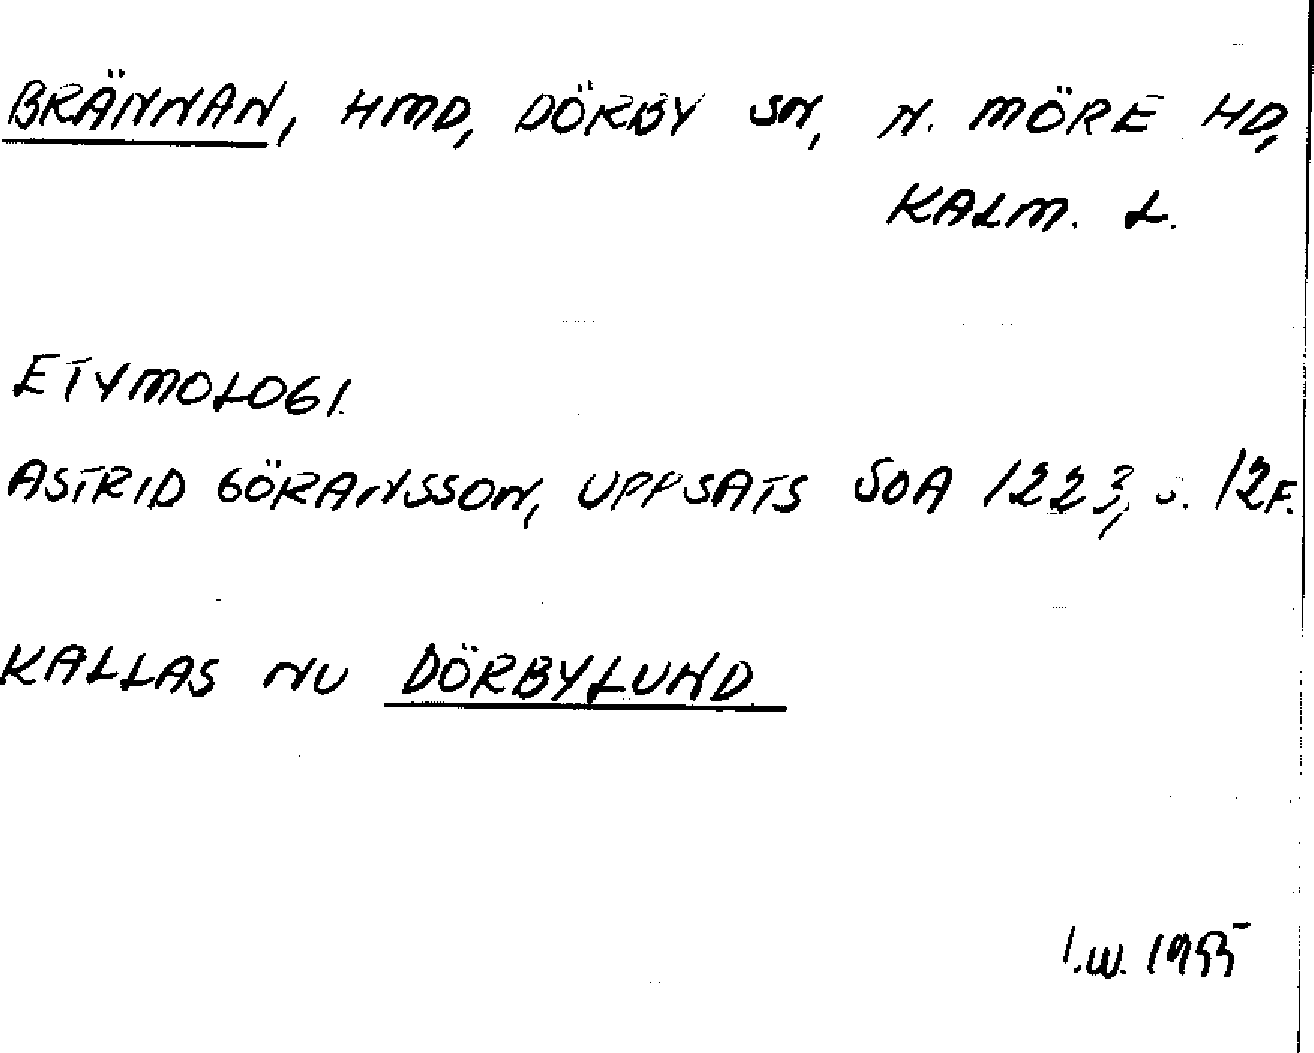 BRÄNNAN, HMD, DÖRBY SN, N. MÖRE HD,
KALM. L.
ETYMOLOGI.
ASTRID GÖRANSSON, UPPSATS SOA 1223, s. 12F.
KALLAS NU DÖRBYLUND
I.W. 1955